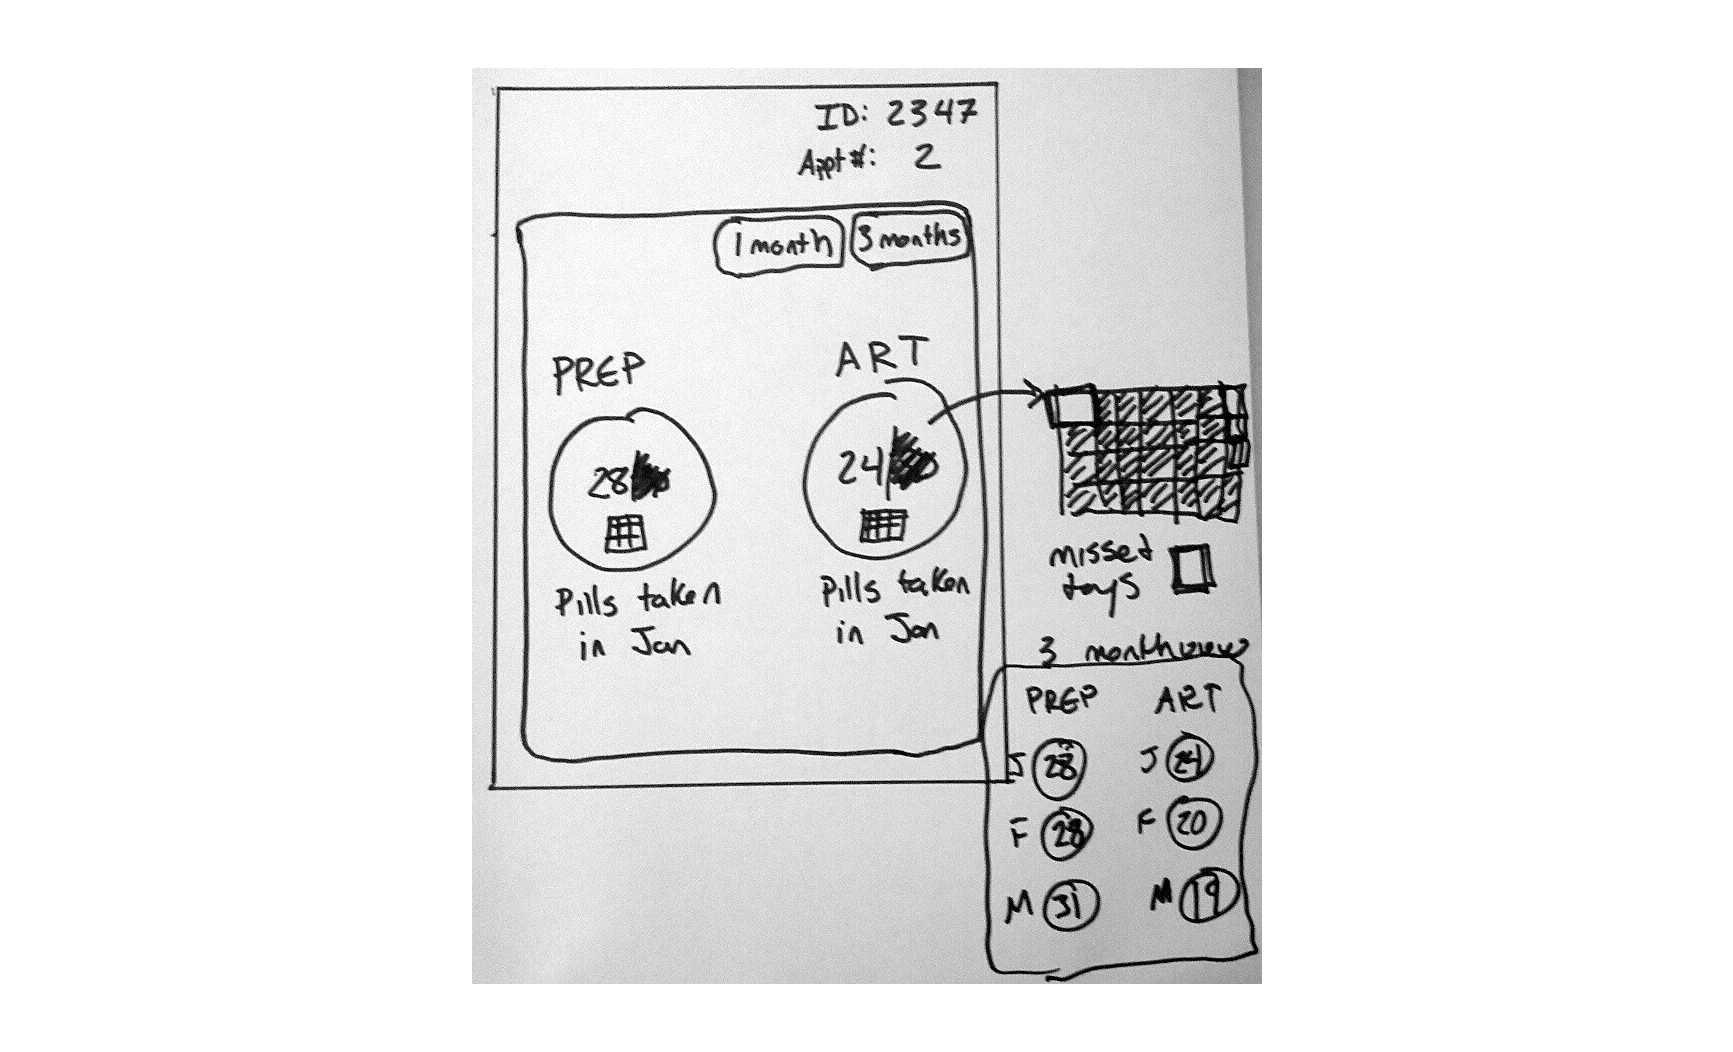 ID: 2347
Appt #: 2
1 month
3 months
PREP
ART
28
24
Pills taken
in Jan
Pills taken
in Jan
missed
days
3 month view
PREP ART
J 28 J 24
F 28 F 20
M 31 M 19